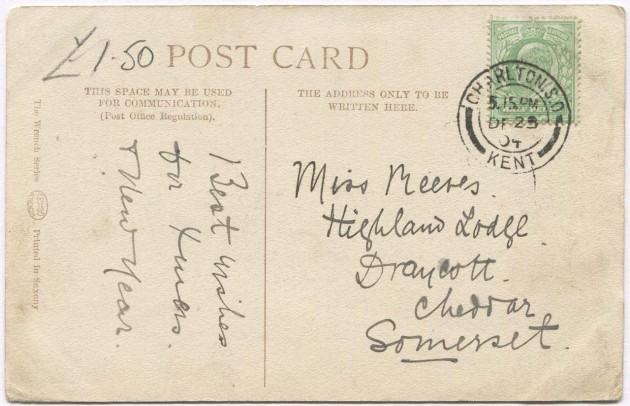 £1.50
POST CARD
THIS SPACE MAY BE USED
FOR COMMUNICATION.
(Post Office Regulation).
THE ADDRESS ONLY TO BE
WRITTEN HERE.
CHARLTON S.O.
5.15 PM
DE 23
04
KENT
Best wishes
for Xmas.
& New Year.
Miss Reeves.
Highland Lodge
Draycott.
Cheddar
Somerset.
The Wrench Series
Printed in Saxony